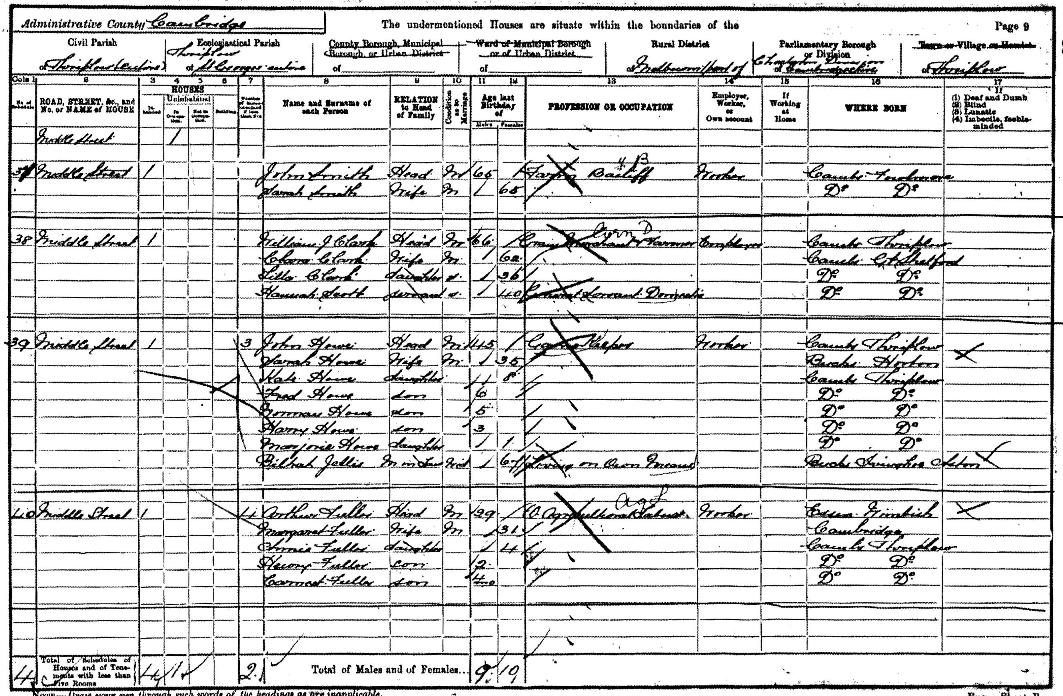 Administrative County Cambridge The undermentioned Houses are situate within the boundaries of the Page 9
Civil Parish Ecclesiastical Parish County Borough, Municipal Borough, or Urban District Ward of Municipal Borough or of Urban District Rural District Parliamentary Borough or Division Town or Village or Hamlet
of Thriplow (entire) Thriplow of St Georges entire of of of Melbourn (part of of Thriplow
Cols 1 2 3 4 5 6 7 8 9 10 11 12 13 14 15 16 17
ROAD, STREET, &c., and No. or NAME of HOUSE HOUSES Name and Surname of each Person RELATION to Head of Family Condition as to Marriage Age last Birthday of PROFESSION OR OCCUPATION Employer, Worker, or Own account If Working at Home WHERE BORN If (1) Deaf and Dumb (2) Blind (3) Lunatic (4) Imbecile, feeble-minded
Uninhabited
Males Females
Middle Street 1
37 Middle Street 1 John Smith Head M 65 Farm Bailiff Worker Cambs
Sarah Smith Wife M 65 Do Do
38 Middle Street 1 William J Clark Head M 66 Corn D Employer Cambs Thriplow
Clara Clark Wife M 62 Cambs Gt Shelford
Clark daughter s 36 Do Do
Hannah Scott servant s 40 General Servant Domestic Do Do
39 Middle Street 1 3 John Howe Head M 45 Keeper Worker Cambs Thriplow
Sarah Howe Wife M 35 Bucks Horton
Kate Howe daughter 8 Cambs Thriplow
Fred Howe son 6 Do Do
Norman Howe son 5 Do Do
Harry Howe son 3 Do Do
Marjorie Howe daughter 1 Do Do
Bilhah Jellis M in law Wid 67 Living on Own Means Bucks Ivinghoe Aston
40 Middle Street 1 4 Arthur Fuller Head M 29 Ag L Agricultural Labour Worker Essex Wimbish
Margaret Fuller Wife M 31 Cambridge
Annie Fuller daughter 4 Cambs Thriplow
Henry Fuller son 2 Do Do
Earnest Fuller son Do Do
4 Total of Schedules of Houses and of Tenements with less than Five Rooms 4 1 2 Total of Males and of Females... 9 10